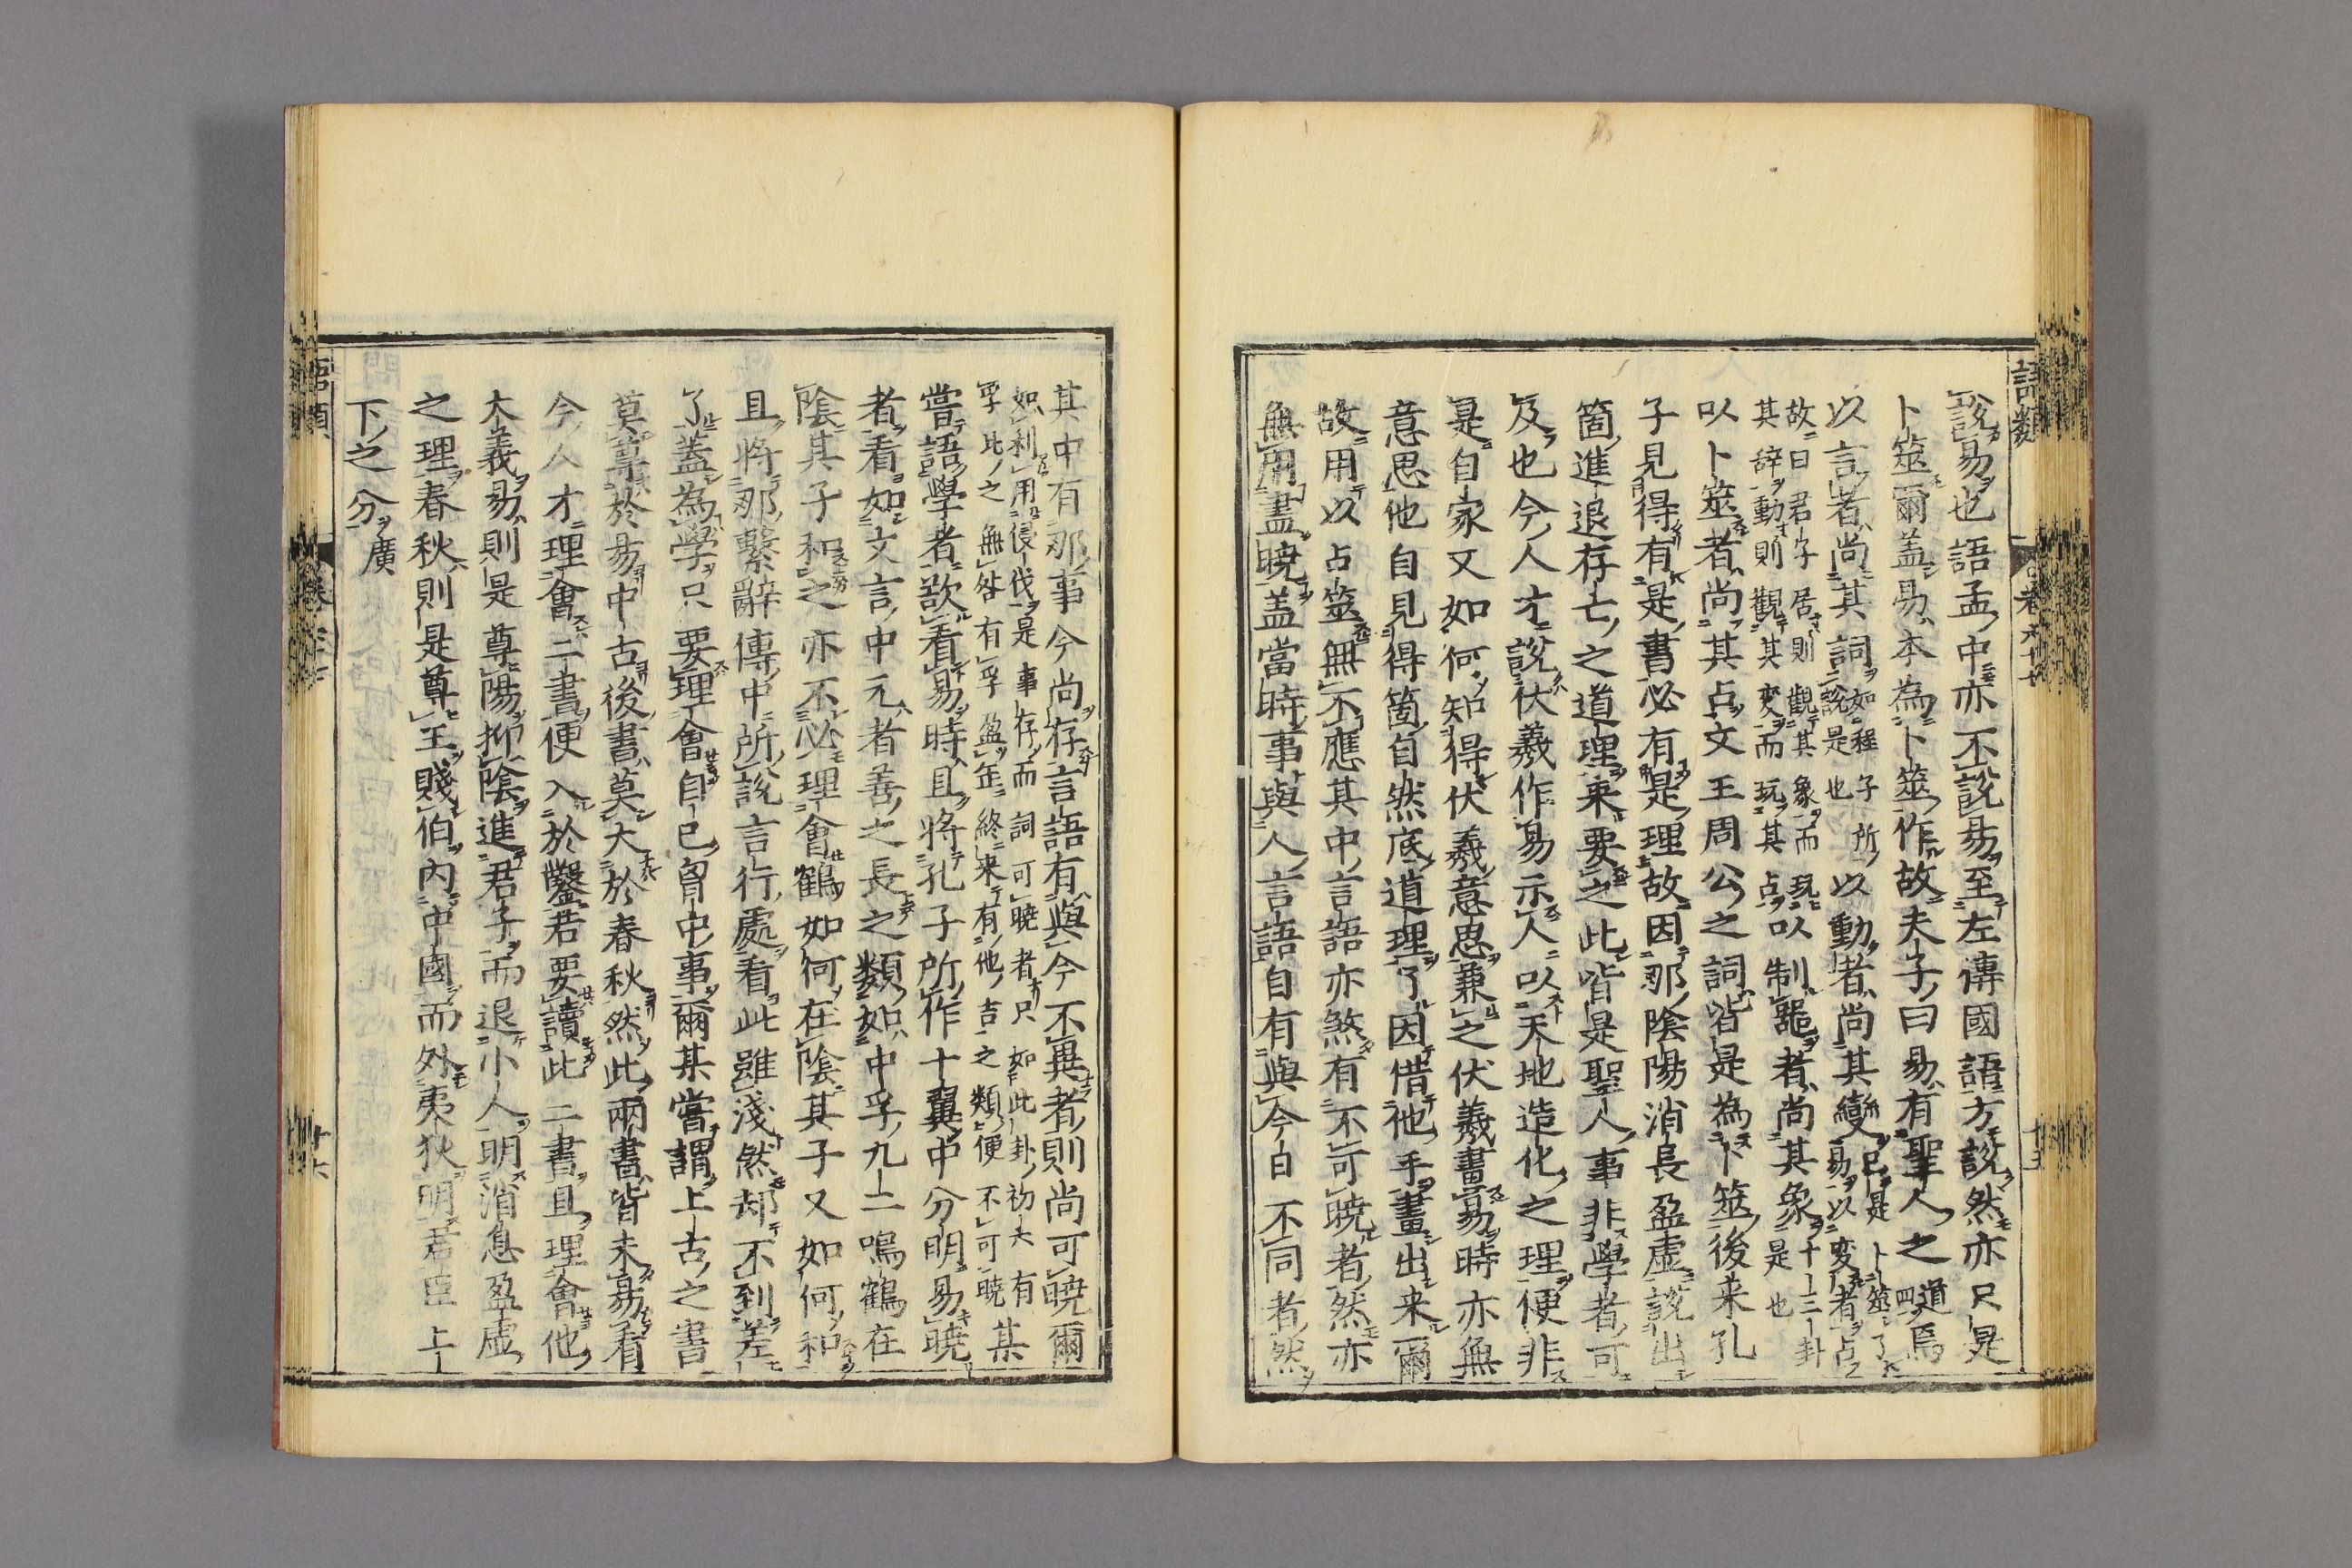 語類
說易也語孟中亦不說易至左傳國語方說然亦只是
卜筮爾盖易本為卜筮作故夫子曰易有聖人之道四焉
以言者尚其詞如程子所說是也以動者尚其變已是卜筮了易以変者占
故曰君子居則觀其象而玩其辞動則觀其変而玩其占以制噐者尚其象十三卦是也
以卜筮者尚其占文王周公之詞皆是為卜筮後来孔
子見得有是書必有是理故因那陰陽消長盈虚說出
箇進退存亡之道理来要之此皆是聖人事非學者可
及也今人才說伏羲作易示人以天地造化之理便非
是自家又如何知得伏羲意思兼之伏羲畫易時亦無
意思他自見得箇自然底道理了因借他手畫出来爾
故用以占筮無不應其中言語亦煞有不可曉者然亦
無用盡曉盖當時事與人言語自有與今日不同者然
其中有那事今尚存言語有與今不異者則尚可曉爾
如利用侵伐是事存而詞可曉者只如此卦初六有
孚比之無咎有孚盈缶終来有他吉之類便不可曉某
嘗語學者欲看易時且將孔子所作十翼中分明易曉
者看如文言中元者善之長之類如中孚九二鳴鶴在
陰其子和之亦不必理會鶴如何在陰其子又如何和
且將那繫辭傳中所說言行處看此雖淺然却不到差
了蓋為學只要理會自己胷中事爾某嘗謂上古之書
莫尊於易中古後書莫大於春秋然此兩書皆未易看
今人才理會二書便入於鑿若要讀此二書且理會他
大義易則是尊陽抑陰進君子而退小人明消息盈虚
之理春秋則是尊王賤伯内中國而外夷狄明君臣上
下之分廣